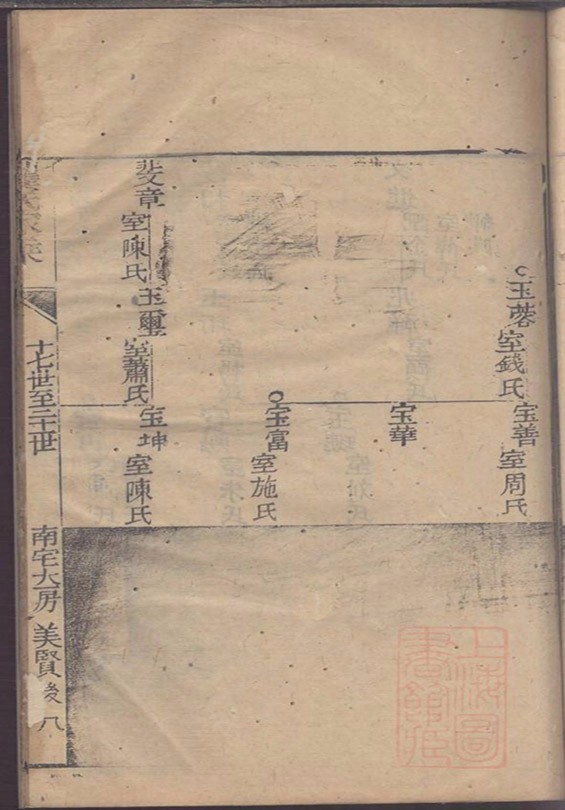 玉蓉
室錢氏
宝善
室周氏
宝華
宝富
室施氏
斐章
室陳氏
玉璽
室蕭氏
宝坤
室陳氏
十七世至二十世
南宅大房
美賢後
八
上海圖書館藏